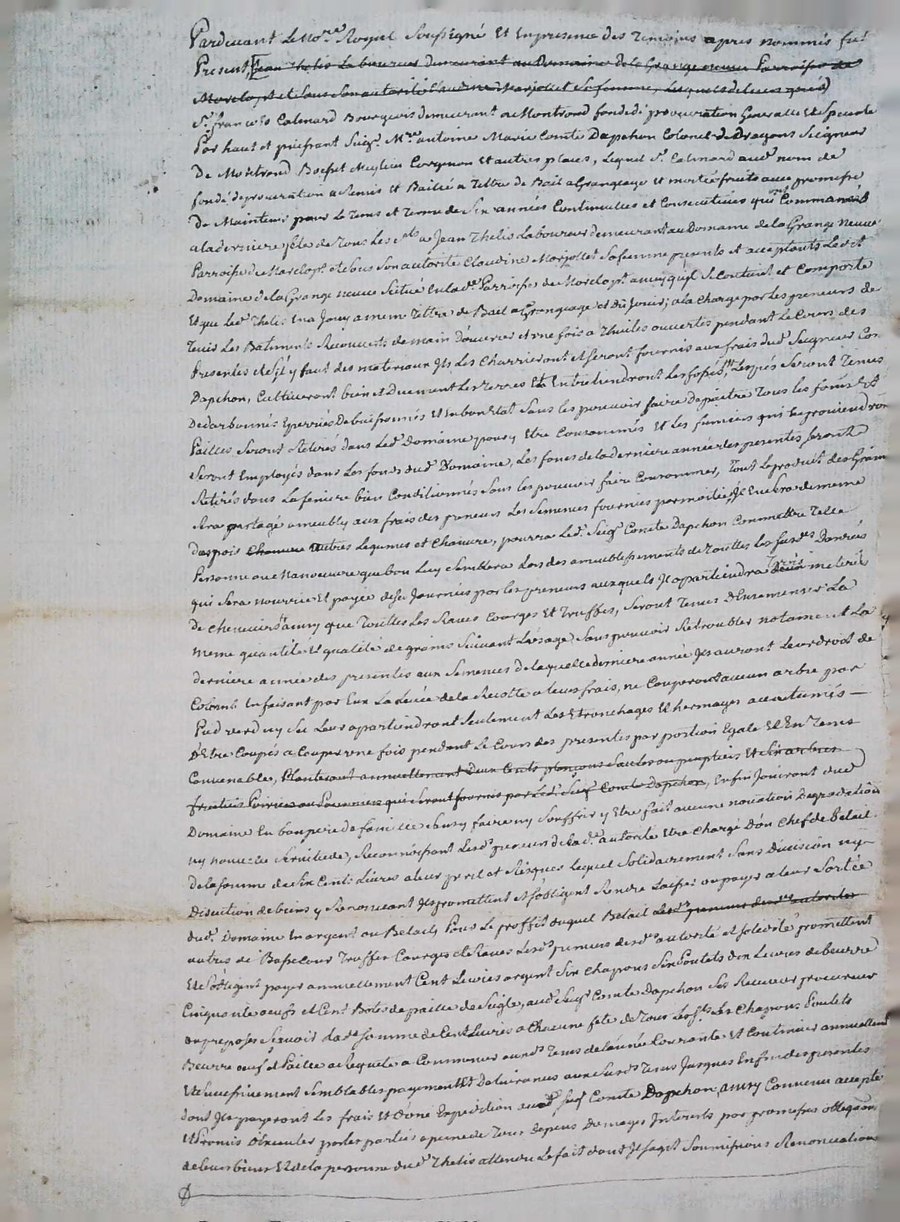 Pardevant Le No.re Royal Soussigné Et En presence des Temoins apres nommés fut
Present, Jean Thelis Laboureur demeurant au Domaine de la Grange neuve Parroisse de
Marclopt et sous son autorité Claudine Marjollet sa femme, Lesquels de leur gré
S.r francois Calmard Bourgeois demeurant a Montrond fondé de procuration Generalle et Speciale
Par haut et puissant Seig.r M.re antoine Marie Comte Dapchon Colonel de Dragons Seigneur
De Montrond Boisset Meylieu Corgenon et autres places, Lequel S.r Calmard aud. nom de
fondé de procuration a Remis et Baillé a Tiltre de Bail a Grangeage et moitié fruits avec promesse
De Maintenir pour Le Tems et Terme de Six années Continuelles et Consecutives qui Commencé
a la derniere fête de Tous Les S.ts a Jean Thelis Laboureur demeurant au Domaine de la Grange Neuve
Parroisse de Marclopt et sous Son autorité Claudine Marjollet Sa femme presents et acceptants Led.t
Domaine de la Grange neuve Scitué En lad. Parroisse de Marclopt ainsy qu'il Se Contient et Comporte
Et que Led. Thelis En a Jouy a meme Tiltre de Bail a Grangeage et du Jouir; a la Charge par les preneurs de
Tenir Les Batiments Recouverts de main d'ouvrier et une fois a Thuiles ouvertes pendant Le Cours des
Presentes et S'il y faut des materiaux Ils Les Charrieront et Seront fournis aux frais dud. Seigneur Comte
Dapchon, Cultiveront bien et Duement Les Terres Entretiendront Les fossés, Les prés Seront Tenus
Pailles Seront Retirés dans Led. Domaine pour y Etre Consommés Et Les fumiers qui En proviendront
Seront Employés dans Les fonds dud. Domaine, Les foins de la derniere année des presentes Seront
Retirés dans La feniere bien Conditionnés Sans Les pouvoir faire Consommer, Tout Le produit des Grains
Sera partagé aux frais des preneurs Les Semences fournies par moitié, Il En Sera de meme
des pois autres Legumes et Chanvre, pourra Led. Seig.r Comte Dapchon Commettre Telle
Personne ou Manoeuvre que bon Luy Semblera Lors des ameublissements de Touttes Les Sus.des Danrées
qui Sera nourrie Et payée de Ses Journées par les preneurs auxquels Il apartiendra
de ainsy que Touttes Les Raves Courges Et Truffes, Seront Tenus D'Ensemencer La
meme quantité Et qualité de grains Suivant L'usage, Sans pouvoir notament La
derniere année des presentes aux Semences de laquelle derniere année Ils auront Leur droit de
Colons En faisant par Eux La Levée de la Recolte a leurs frais, ne Couperont aucun arbre par
Pied verd ny Sec Leur apartiendront Seulement Les Etronchages Et accoutumés
D'Etre Coupés a Couper une fois pendant Le Cours des presentes par portion Egale Et En Tems
Convenables, Planteront annuellement deux Cents plançons Saules ou peupliers Et Six arbres
fruitiers Poiriers ou Pommiers qui Seront fournis par Led. Seig.r Comte Dapchon, Enfin Jouiront dud.
Domaine En bon pere de famille Sans y faire ny Souffrir y Etre fait aucune novation Degradation
ny nouvelle Servitude, Reconnoissant Lesd. preneurs de lad. autorité Etre Chargé D'un Chef de Betail
de la Somme de Six Cents Livres a leur peril et Risques Lequel Solidairement Sans Division ny
Discution de biens y Renonceant Ils promettent et S'obligent Rendre Laisser ou payer a leur Sortie
dud. Domaine En argent ou Betail, Pour Le proffit duquel Betail Lesd. preneurs de lad. autorité
autres de Bassecour Truffes Courges et Raves Lesd. preneurs de lad. autorité et Solidité promettent
Et S'obligent payer annuellement Cent Livres argent Six Chapons Six Poulets Dix Livres de beurre
Cinquante oeufs et Cent Botes de paille de Seigle, aud. Seig.r Comte Dapchon Ses Receveur procureur
ou preposés Scavoir lad. Somme de Cent Livres a Chacune fete de Tous Les S.ts Les Chapons Poulets
Beurre oeufs et Paille a la Requete a Commencer auxd. Tems de l'année Courante Et Continuer annuellement
Et Successivement Semblables payements Et Delivrances aux Susd. Tems Jusques En fin des presentes
dont Ils payeront Les frais Et d'une Expedition aud. Seig.r Comte Dapchon, ainsy Convenu accepté
Et Promis Observer par les parties a peine de Tous Depens Domages Interets par promesses obligations
de leurs biens Et de la personne dud. Thelis attendu Le fait dont Il S'agit Soumissions Renonciations